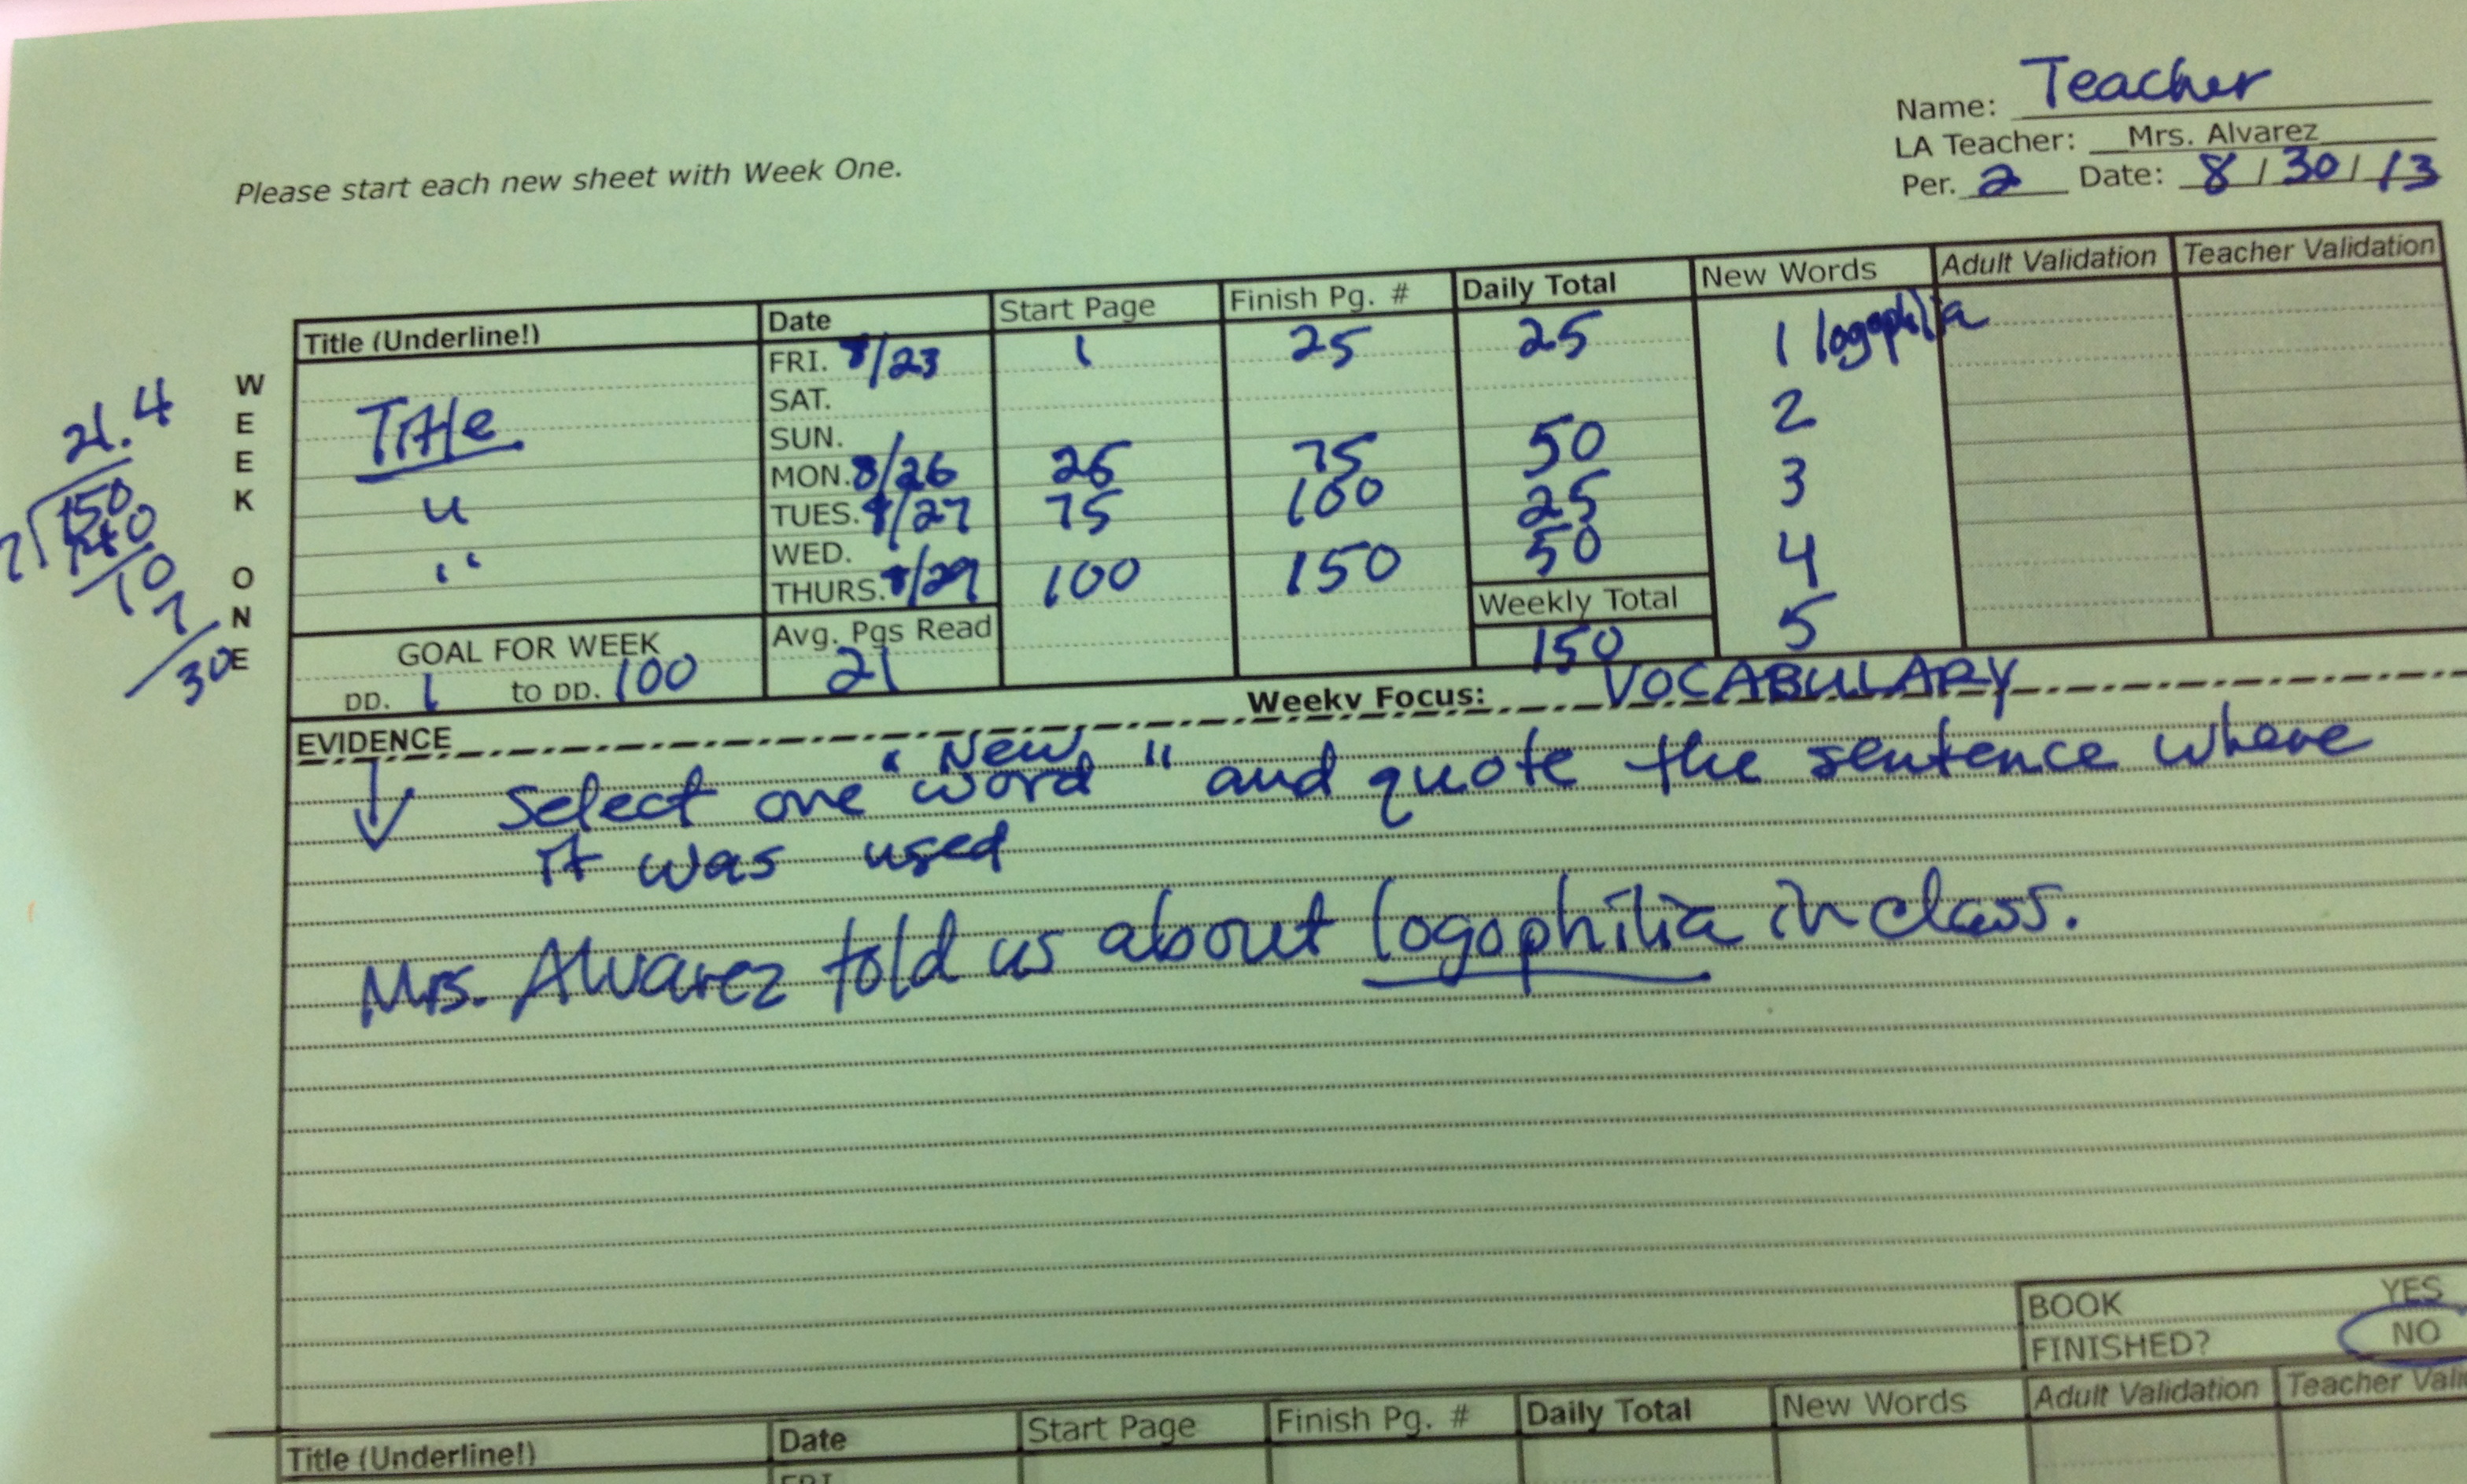 Name: Teacher
LA Teacher: Mrs. Alvarez
Per. 2 Date: 8/30/13
Please start each new sheet with Week One.
Title (Underline!) Date Start Page Finish Pg. # Daily Total New Words Adult Validation Teacher Validation
WEEK ONE
FRI. 8/23 1 25 25 1 logophilia
SAT.
Title SUN. 2
MON. 8/26 26 75 50
" TUES. 8/27 75 100 25 3
WED.
" THURS. 8/29 100 150 50 4
Weekly Total
GOAL FOR WEEK Avg. Pgs Read 5
pp. 1 to pp. 100 21 150
21.4
7 150
140
10
7
30
Weeky Focus: VOCABULARY
EVIDENCE
↓ Select one "New word" and quote the sentence where
it was used
Mrs. Alvarez told us about logophilia in class.
BOOK YES
FINISHED? NO
Title (Underline!) Date Start Page Finish Pg. # Daily Total New Words Adult Validation Teacher Vali
FRI